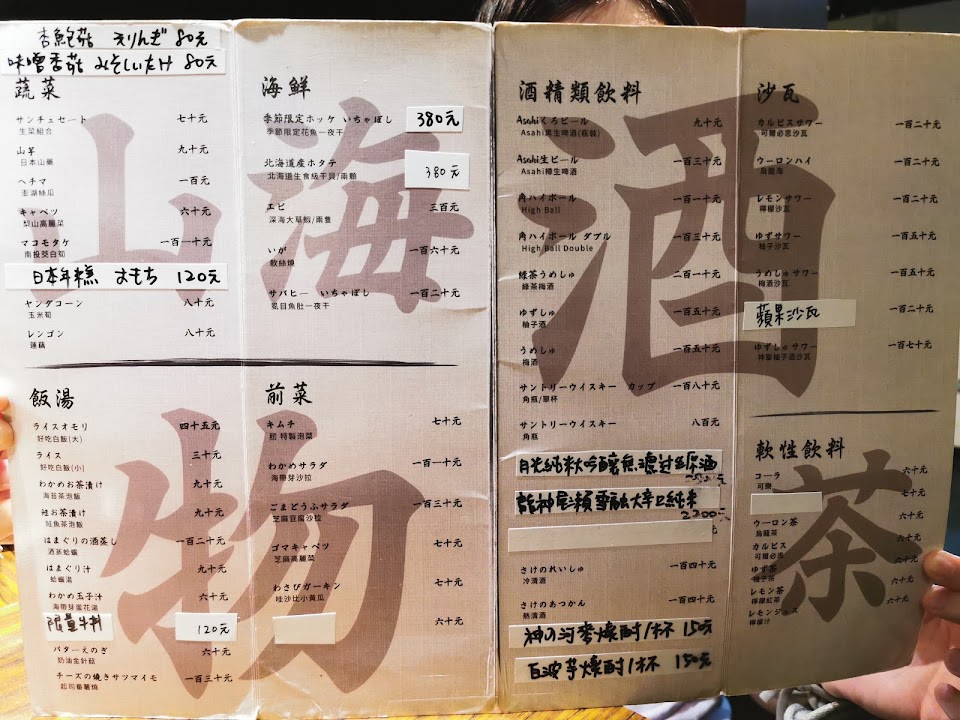 杏鮑菇 えりんぎ 80元
味噌香菇 みそしいたけ 80元
蔬菜
サンチュセート 七十元
生菜組合
山芋 九十元
日本山藥
ヘチマ 一百元
澎湖絲瓜
キャベツ 六十元
梨山高麗菜
マコモタケ 一百一十元
南投筊白筍
日本年糕 おもち 120元
ヤンダコーン 八十元
玉米筍
レンゴン 八十元
蓮藕
飯湯
ライスオモリ 四十五元
好吃白飯(大)
ライス 三十元
好吃白飯(小)
わかめお茶漬け 九十元
海苔茶泡飯
鮭お茶漬け 九十元
鮭魚茶泡飯
はまぐりの酒蒸し 一百二十元
酒蒸蛤蠣
はまぐり汁 九十元
蛤蠣湯
わかめ玉子汁 六十元
海帶芽蛋花湯
限量牛料 120元
バターえのぎ 六十元
奶油金針菇
チーズの焼きサツマイモ 一百三十元
起司蕃薯燒
海鮮
季節限定ホッケ いちゃぼし 380元
季節限定花魚一夜干
北海道産ホタテ 380元
北海道生食級干貝/兩顆
エビ 三百元
深海大草蝦/兩隻
いが 一百六十元
軟絲燒
サバヒー いちゃぼし 一百二十元
虱目魚肚一夜干
前菜
キムチ 七十元
特製泡菜
わかめサラダ 一百一十元
海帶芽沙拉
ごまどうふサラダ 一百三十元
芝麻豆腐沙拉
ゴマキャベツ 七十元
芝麻高麗菜
わさびガーキン 七十元
哇沙比小黃瓜
六十元
酒精類飲料
Asahiくろビール 九十元
Asahi黑生啤酒(瓶裝)
Asahi生ビール 一百三十元
Asahi樽生啤酒
角ハイボール 一百一十元
High Ball
角ハイボール ダブル 一百三十元
High Ball Double
綠茶うめしゅ 二百一十元
綠茶梅酒
ゆずしゅ 一百五十元
柚子酒
うめしゅ 一百五十元
梅酒
サントリーウイスキー カップ 一百八十元
角瓶/單杯
サントリーウイスキー 八百元
角瓶
2200元
さけのれいしゅ 一百四十元
冷清酒
さけのあつかん 一百四十元
熱清酒
神の河麥燒酎/杯 150元
白波芋燒酎/杯 150元
沙瓦
カルピスサワー 一百二十元
可爾必思沙瓦
ウーロンハイ 一百二十元
烏龍海
レモンサワー 一百二十元
檸檬沙瓦
ゆずサワー 一百五十元
柚子沙瓦
うめしゅサワー 一百五十元
梅酒沙瓦
蘋果沙瓦
ゆずしゅサワー 一百七十元
神聖柚子酒沙瓦
軟性飲料
コーラ 六十元
可樂
七十元
ウーロン茶 六十元
烏龍茶
カルピス 六十元
可爾必思
ゆず茶 六十元
柚子茶
レモン茶 六十元
檸檬紅茶
レモンジュース 六十元
檸檬汁
山
海
物
酒
茶